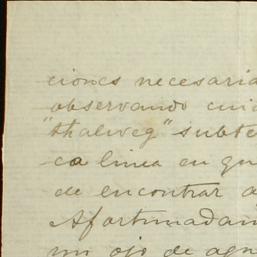 ciones necesaria
observando cui
"thalweg" subte
ca linea en qu
de encontrar a
Afortunadam
un ojo de agu